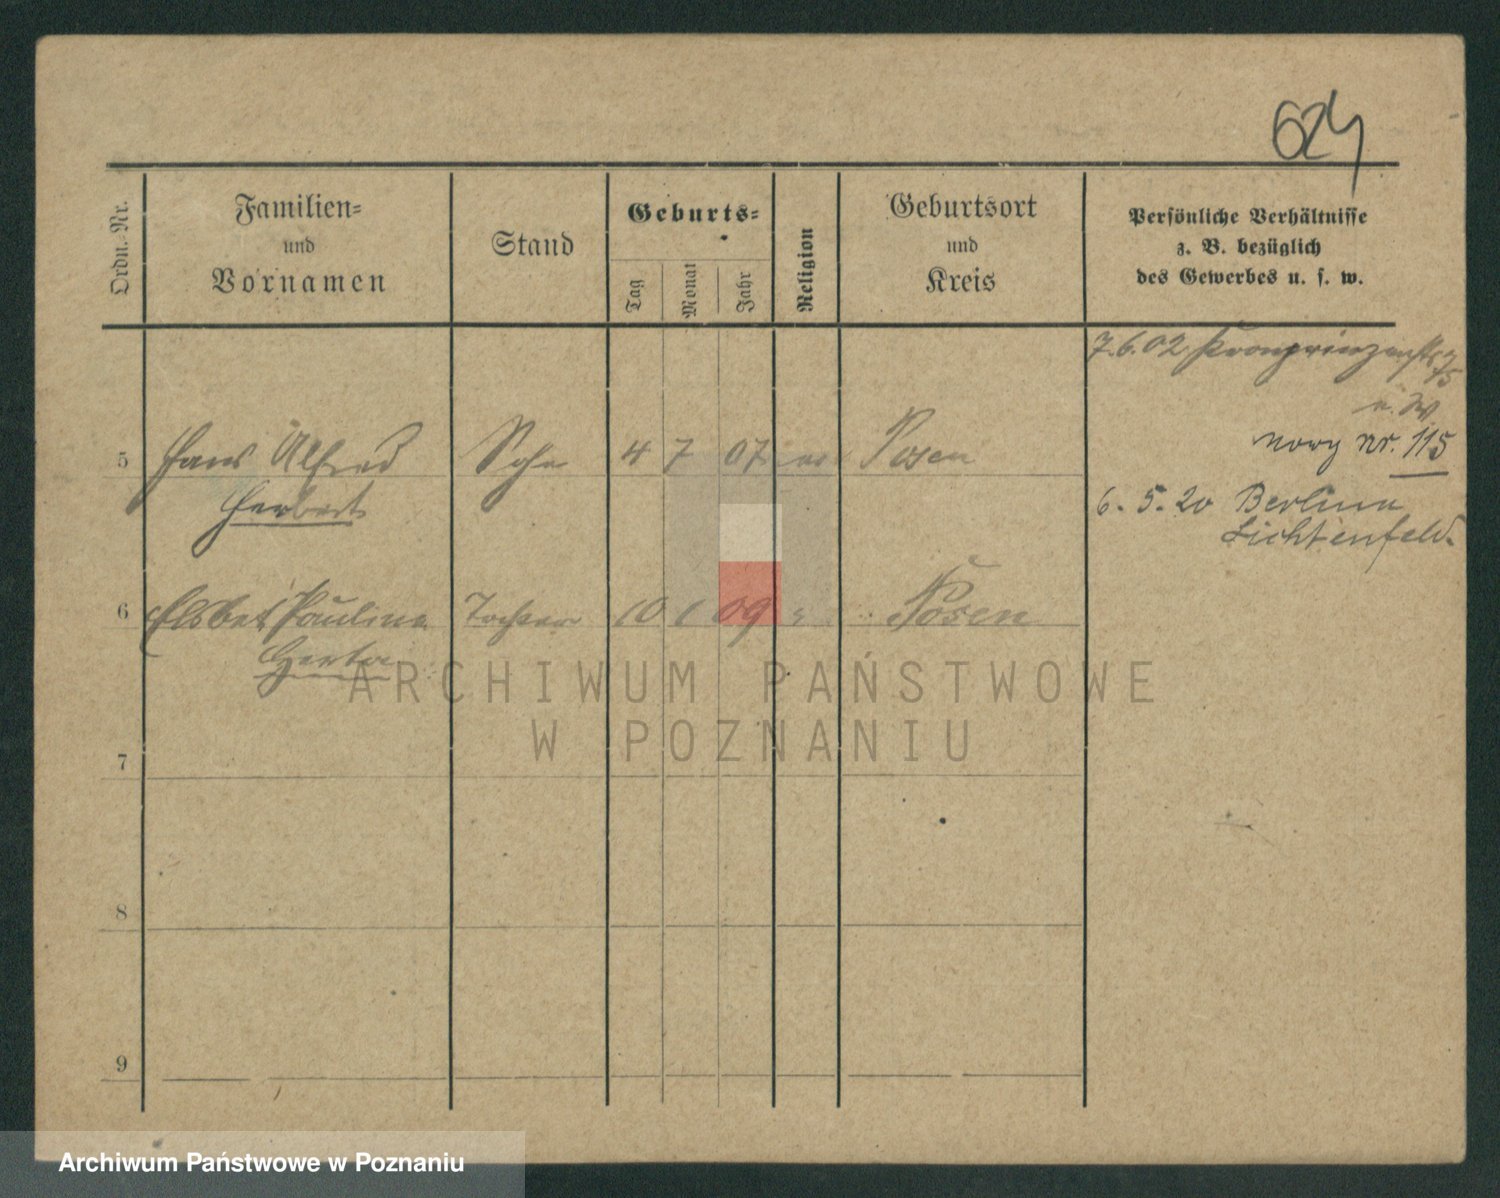 624
Ordn. Nr.
Familien=
und
Vornamen
Stand
Geburts=
Tag
Monat
Jahr
Religion
Geburtsort
und
Kreis
Persönliche Verhältnisse
z. B. bezüglich
des Gewerbes u. s. w.
7.6.02 Kronprinzenstr. 75
n. W
nowy nr. 115
5 Hans Alfred Sohn 4 7 07 Posen
Herbert
6. 5. 20 Berlin
Lichtenfeld.
6 Elsbet Pauline Tochter 10 1 09 Posen
Herta
7
8
9
ARCHIWUM PAŃSTWOWE
W POZNANIU
Archiwum Państwowe w Poznaniu